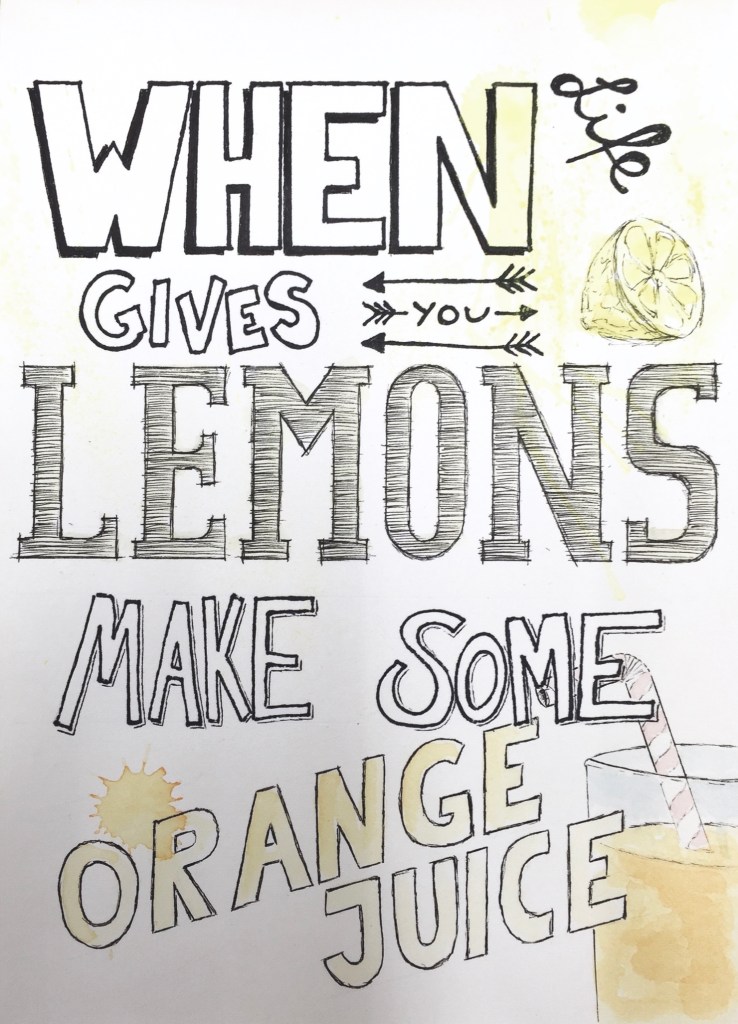 WHEN Life
GIVES YOU
LEMONS
MAKE SOME
ORANGE
JUICE